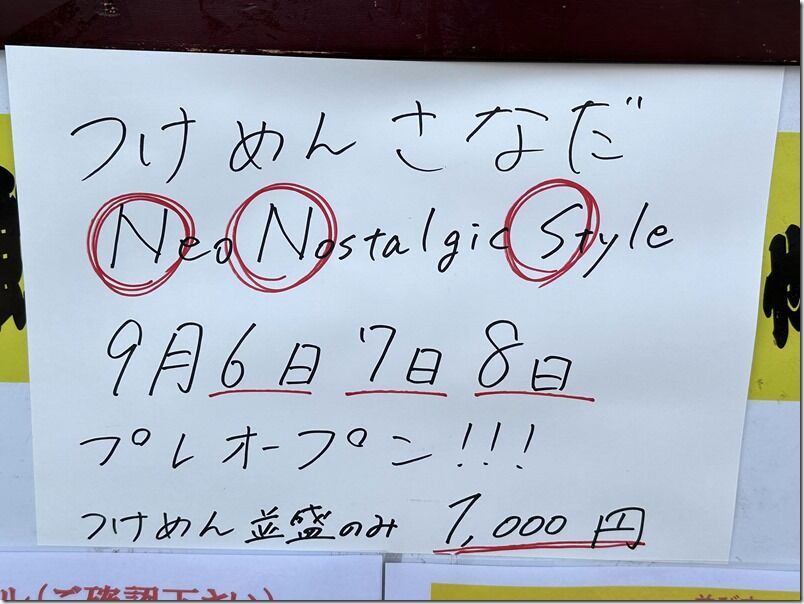 つけめん さなだ
Neo Nostalgic Style
9月6日 7日 8日
プレオープン!!!
つけめん並盛のみ 1,000円
ル(ご確認下さい)